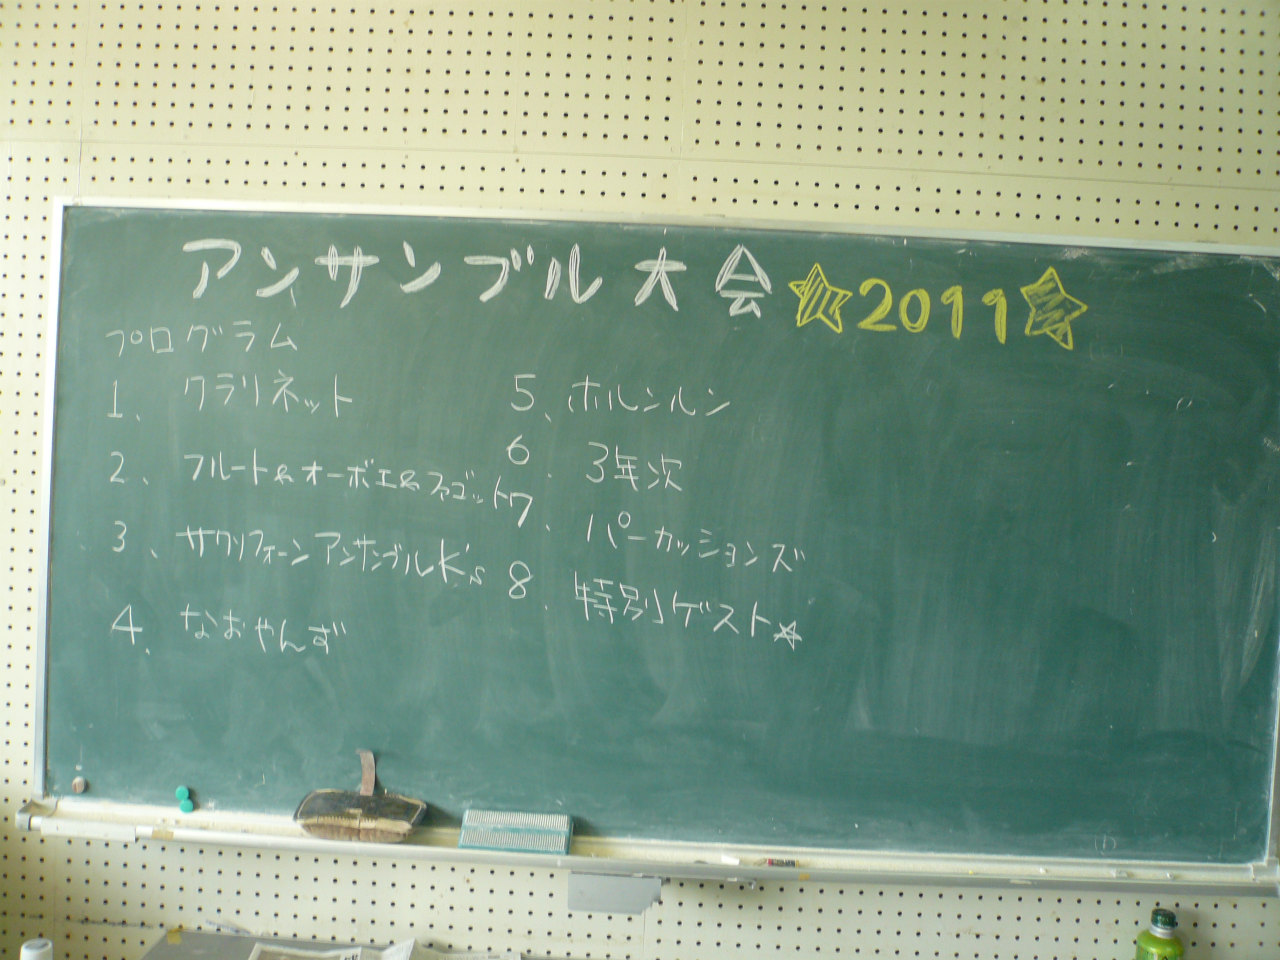 アンサンブル大会☆2011☆
プログラム
1、 クラリネット
2、 フルート&オーボエ&ファゴット
3、 サクソフォーンアンサンブルK's
4、 なおやんず
5、 ホルンルン
6、 3年次
7、 パーカッションズ
8、 特別ゲスト☆